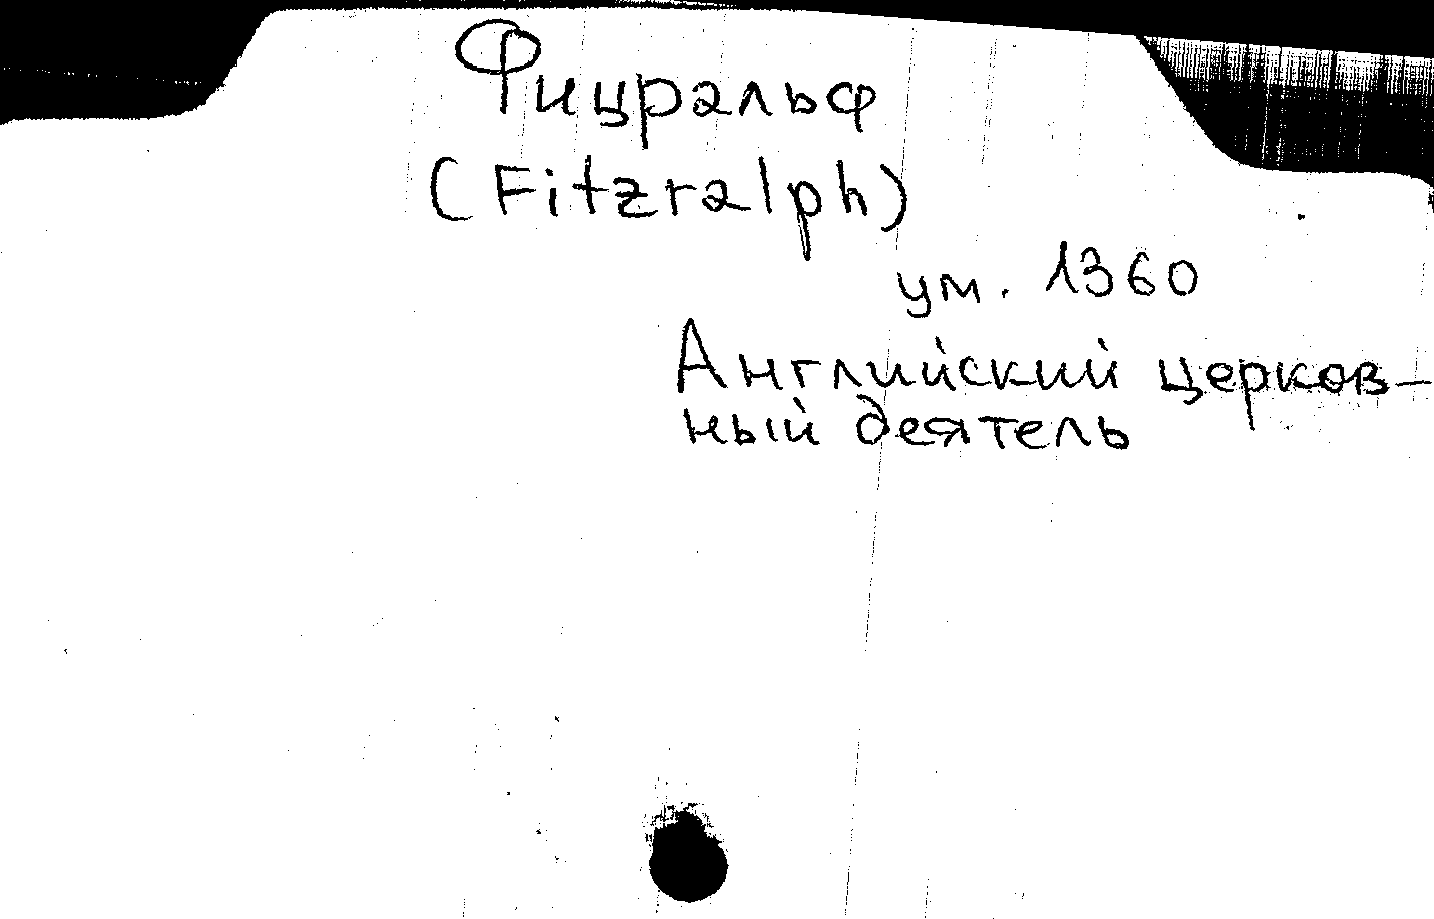 Фицральф
(Fitzralph)
ум. 1360
Английский церков-
ный деятель